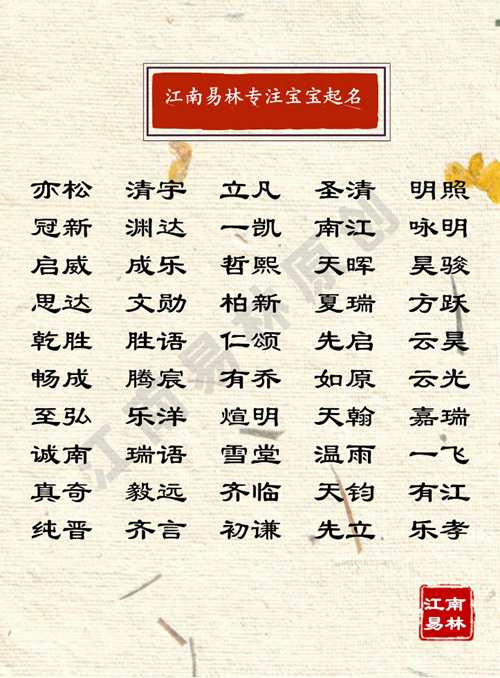 江南易林专注宝宝起名
亦松 清宇 立凡 圣清 明照
冠新 渊达 一凯 南江 咏明
启威 成乐 哲熙 天晖 昊骏
思达 文勋 柏新 夏瑞 方跃
乾胜 胜语 仁颂 先启 云昊
畅成 腾宸 有乔 如原 云光
至弘 乐洋 煊明 天翰 嘉瑞
诚南 瑞语 雪堂 温雨 一飞
真奇 毅远 齐临 天钧 有江
纯晋 齐言 初谦 先立 乐孝
江南易林原创
江南
易林